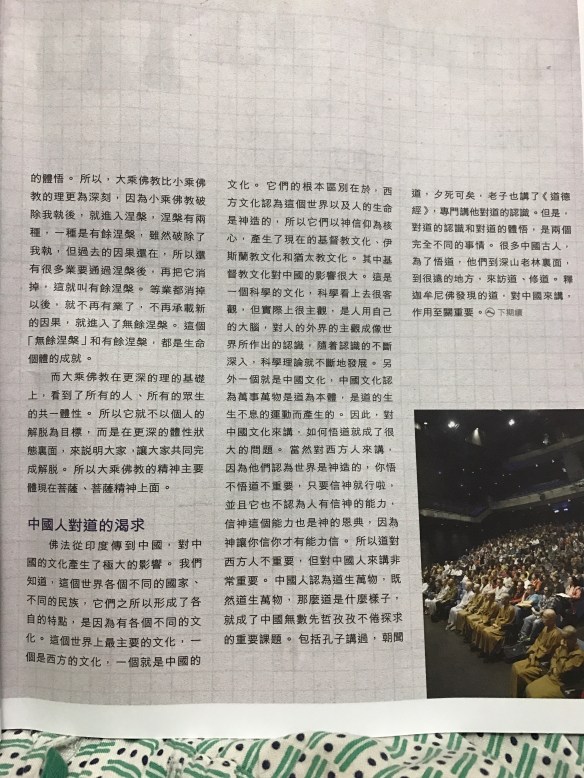 的體悟。所以，大乘佛教比小乘佛
教的理更為深刻，因為小乘佛教破
除我執後，就進入涅槃，涅槃有兩
種，一種是有餘涅槃，雖然破除了
我執，但過去的因果還在，所以還
有很多業要通過涅槃後，再把它消
掉，這就叫有餘涅槃。等業都消掉
以後，就不再有業了，不再承載新
的因果，就進入了無餘涅槃。這個
「無餘涅槃」和有餘涅槃，都是生命
個體的成就。
而大乘佛教在更深的理的基礎
上，看到了所有的人、所有的眾生
的共一體性。所以它就不以個人的
解脫為目標，而是在更深的體性狀
態裏面，來說明大家，讓大家共同完
成解脫。所以大乘佛教的精神主要
體現在菩薩、菩薩精神上面。
中國人對道的渴求
佛法從印度傳到中國，對中
國的文化產生了極大的影響。我們
知道，這個世界各個不同的國家、
不同的民族，它們之所以形成了各
自的特點，是因為有各個不同的文
化。這個世界上最主要的文化，一
個是西方的文化，一個就是中國的
文化。它們的根本區別在於，西
方文化認為這個世界以及人的生命
是神造的，所以它們以神信仰為核
心，產生了現在的基督教文化、伊
斯蘭教文化和猶太教文化。其中基
督教文化對中國的影響很大。這是
一個科學的文化，科學看上去很客
觀，但實際上很主觀，是人用自己
的大腦，對人的外界的主觀成像世
界所作出的認識，隨着認識的不斷
深入，科學理論就不斷地發展。另
外一個就是中國文化，中國文化認
為萬事萬物是道為本體，是道的生
生不息的運動而產生的。因此，對
中國文化來講，如何悟道就成了很
大的問題。當然對西方人來講，
因為他們認為世界是神造的，你悟
不悟道不重要，只要信神就行啦，
並且它也不認為人有信神的能力，
信神這個能力也是神的恩典，因為
神讓你信你才有能力信。所以道對
西方人不重要，但對中國人來講非
常重要。中國人認為道生萬物，既
然道生萬物，那麼道是什麼樣子，
就成了中國無數先哲孜孜不倦探求
的重要課題。包括孔子講過，朝聞
道，夕死可矣，老子也講了《道德
經》，專門講他對道的認識。但是，
對道的認識和對道的體悟，是兩個
完全不同的事情。很多中國古人，
為了悟道，他們到深山老林裏面，
到很遠的地方，來訪道、修道。釋
迦牟尼佛發現的道，對中國來講，
作用至關重要。下期續